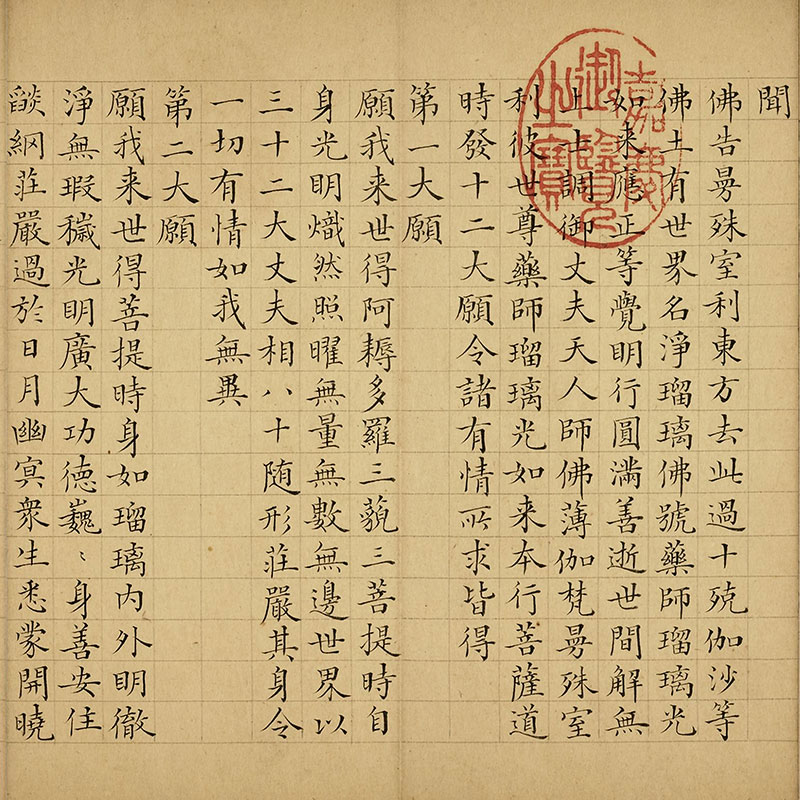 聞
佛告曼殊室利東方去此過十殑伽沙等
佛土有世界名淨瑠璃佛號藥師瑠璃光
如来應正等覺明行圓滿善逝世間解無
上士調御丈夫天人師佛薄伽梵曼殊室
利彼世尊藥師瑠璃光如来夲行菩薩道
時發十二大願令諸有情所求皆得
第一大願
願我来世得阿耨多羅三藐三菩提時自
身光明熾然照曜無量無數無邊世界以
三十二大丈夫相八十随形莊嚴其身令
一切有情如我無異
第二大願
願我来世得菩提時身如瑠璃内外明徹
淨無瑕穢光明廣大功德巍〻身善安住
燄網莊嚴過於日月幽冥衆生悉蒙開曉
嘉慶
御覽
之寶